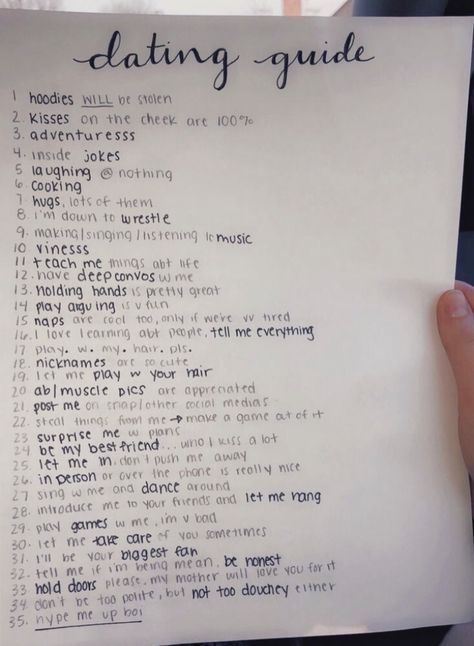 dating guide
1 hoodies WILL be stolen
2. kisses on the cheek are 100%
3. adventuresss
4. inside jokes
5 laughing @ nothing
6. cooking
7. hugs, lots of them
8. i'm down to wrestle
9. making/singing/listening to music
10 vinesss
11 teach me things abt life
12. have deep convos w me
13. holding hands is pretty great
14 play arguing is v fun
15 naps are cool too, only if we're vv tired
16. I love learning abt people, tell me everything
17 play. w. my. hair. pls.
18. nicknames are so cute
19. let me play w your hair
20 ab/muscle pics are appreciated
21. post me on snap/other social medias
22. steal things from me → make a game out of it
23 surprise me w plans
24 be my best friend... who i kiss a lot
25. let me in. don't push me away
26. in person or over the phone is really nice
27 sing w me and dance around
28. introduce me to your friends and let me hang
29. play games w me, im v bad
30. let me take care of you sometimes
31. i'll be your biggest fan
32. tell me if i'm being mean, be honest
33 hold doors please, my mother will love you for it
34 don't be too polite, but not too douchey either
35. hype me up boi